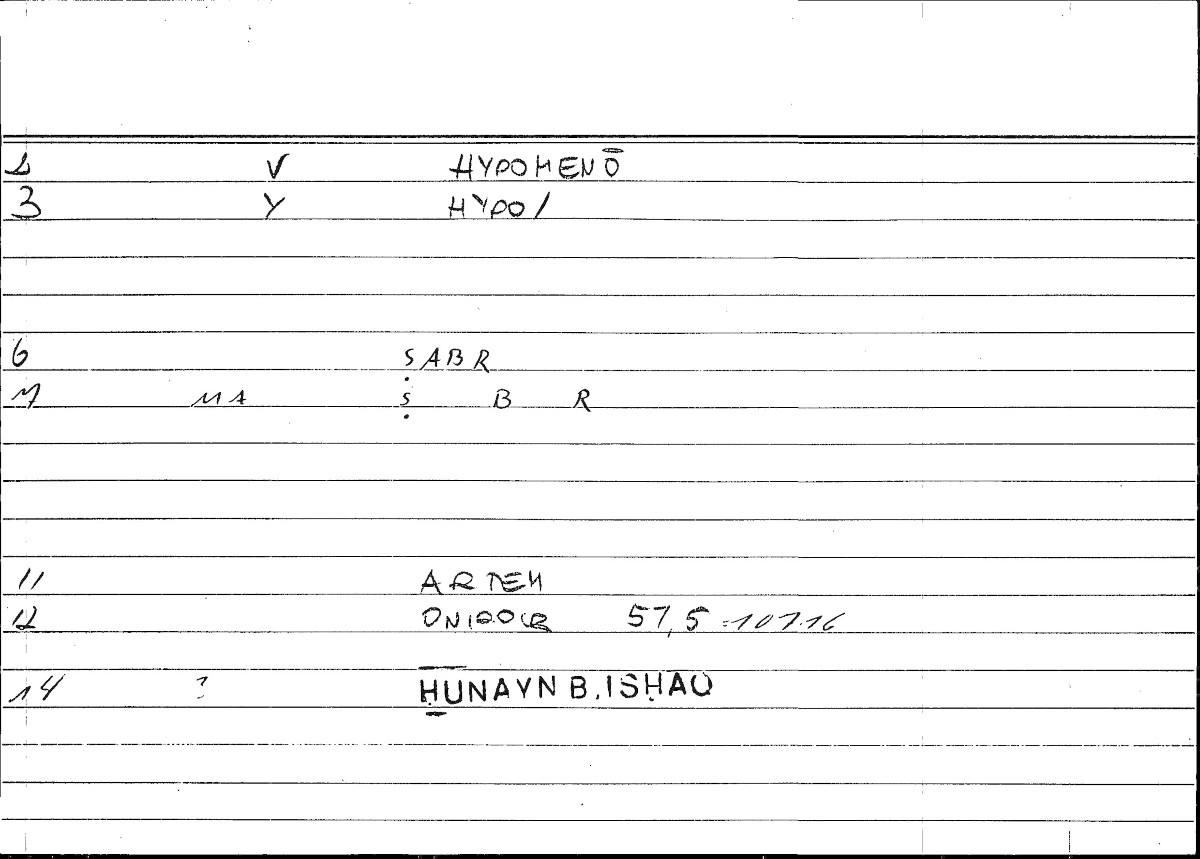 2 V HYPOMENŌ
3 Y HYPO/
6 ṢABR
7 MA Ṣ B R
11 ARTEM
12 ONIROCR 57,5 = 107.16
14 ? ḤUNAYN B. ISḤAQ